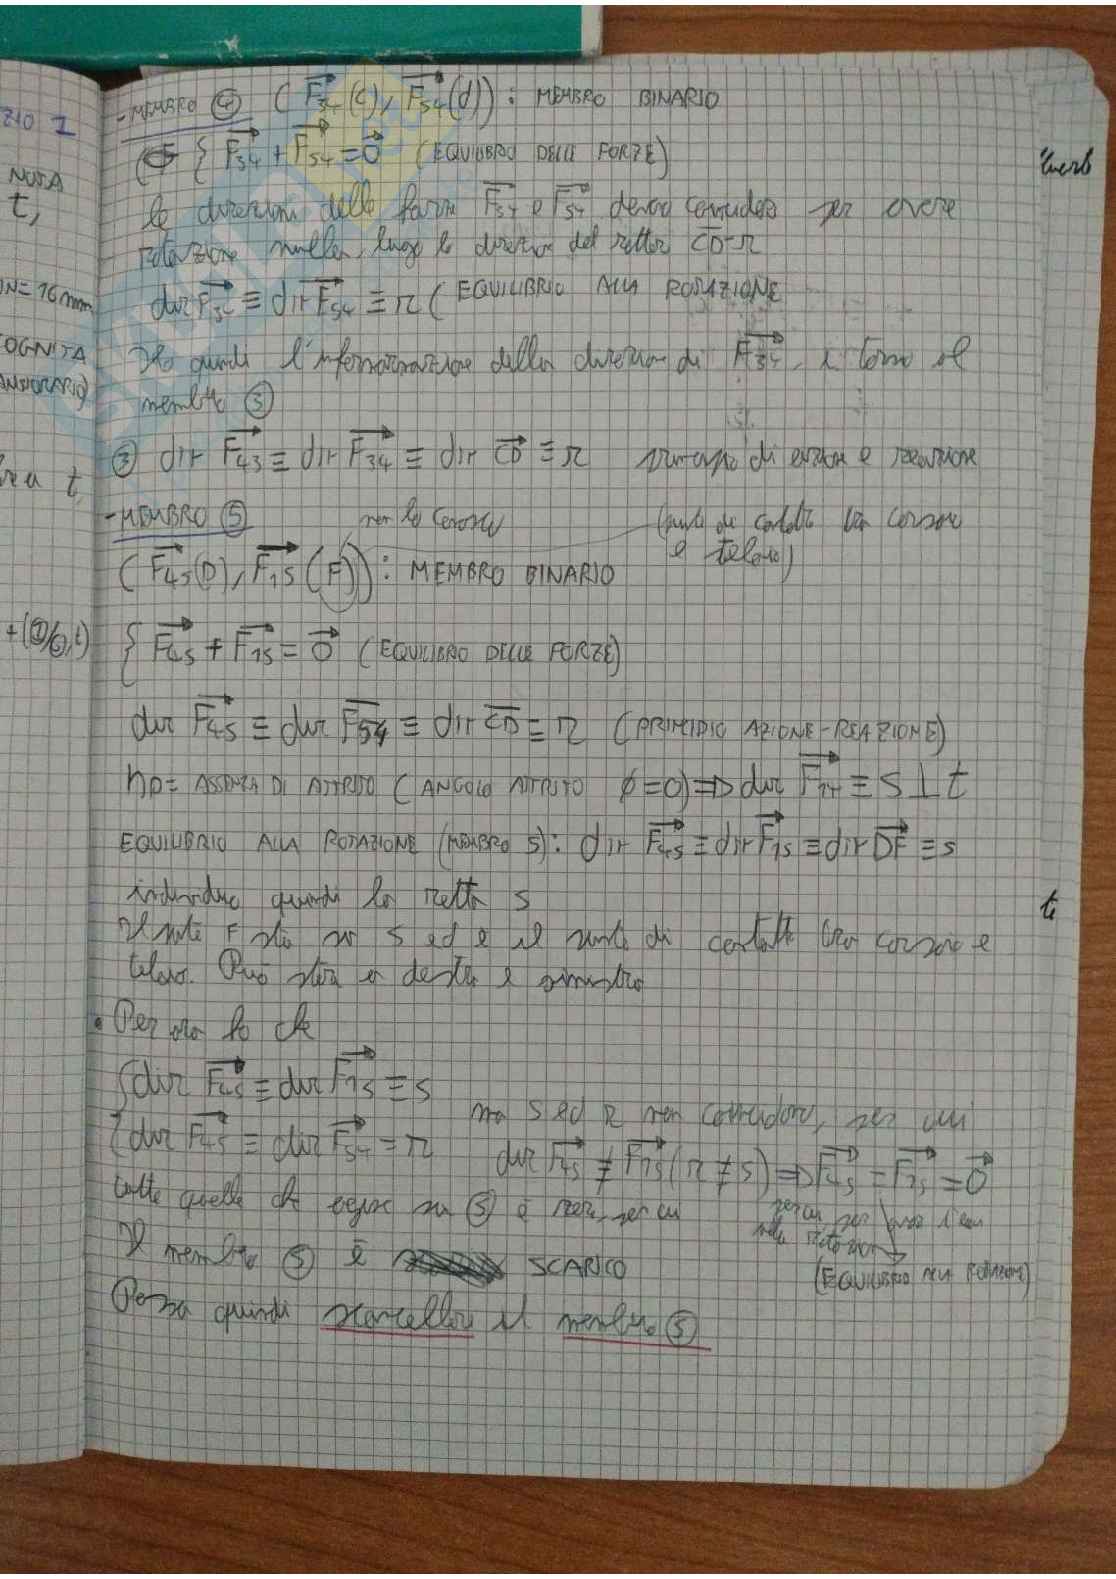 ZIO 1
NOTA
t,
IN = 16 mm
COGNITA
t,
+(①/⑥,t)
- MEMBRO ④ (F34(c), F54(d)): MEMBRO BINARIO
{ F34 + F54 = 0 (EQUILIBRO DELLE FORZE)
le direzioni delle forze F34 e F54 devono coincidere per avere
rotazione nulla, luogo la direzione del retta CD=r
dir F34 ≡ dir F54 ≡ r (EQUILIBRIO ALLA ROTAZIONE
Ho quindi l'informazione della direzione di F34, e torno al
membro ③
③ dir F43 ≡ dir F34 ≡ dir CD ≡ r principio di azione e reazione
- MEMBRO ⑤ non lo conosco (punto di contatto tra corsoio
e telaio)
(F45(D), F15(F)): MEMBRO BINARIO
{ F45 + F15 = 0 (EQUILIBRO DELLE FORZE)
dir F45 ≡ dir F54 ≡ dir CD = r (PRINCIPIO AZIONE-REAZIONE)
hp= ASSENZA DI ATTRITO (ANGOLO ATTRITO φ=0) => dir F14 ≡ s ⊥ t
EQUILIBRIO ALLA ROTAZIONE (MEMBRO 5): dir F45 ≡ dir F15 ≡ dir DF ≡ s
individuo quindi la retta s
Il punto F sta su s ed è il punto di contatto tra corsoio e
telaio. Può stare a destra e sinistra
• Per ora so che
{ dir F45 ≡ dir F15 ≡ s
{ dir F45 ≡ dir F54 = r
ma s ed r non coincidono, per cui
dir F45 ≢ F15 (r ≢ s) => F45 = F15 = 0
tutte quelle che agisce su ⑤ è zero, per cui
(EQUILIBRIO ALLA ROTAZIONE)
Il membro ⑤ è SCARICO
Posso quindi cancellare il membro ⑤